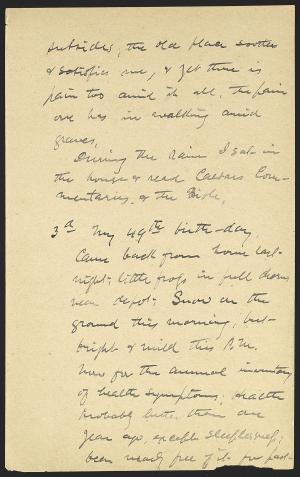 subsides, the old place soothes
& satisfies me, & yet there is
pain too amid it all, the pain
one has in walking amid
graves.
During the rain I sat in
the house & read Caesars Com-
mentaries, & the Bible.
3d My 49th birth-day.
Came back from home last
night; little frogs in full chorus
near depot; Snow on the
ground this morning, but
bright & mild this P.M.
Now for the annual inventory
of health symptoms; Health
probably better than one
year ago, except sleeplessness;
been nearly free of it for past